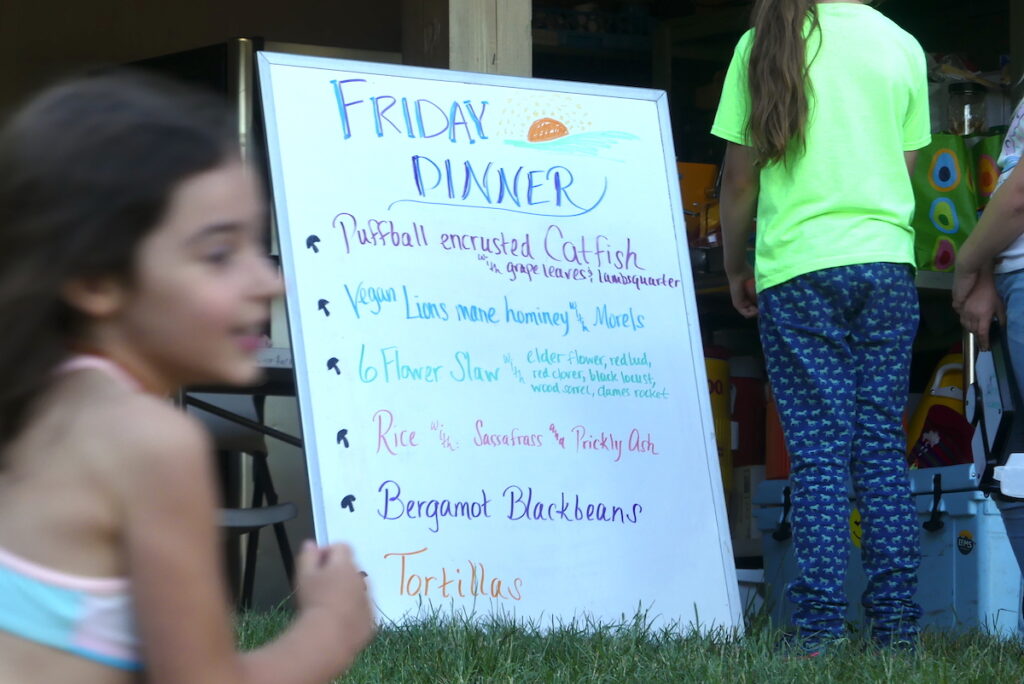 FRIDAY
DINNER
Puffball encrusted Catfish
with grape leaves & lambsquarter
Vegan Lions mane hominey with Morels
6 Flower Slaw with elder flower, redbud,
red clover, black locust,
wood sorrel, dames rocket
Rice with Sassafrass and Prickly Ash
Bergamot Blackbeans
Tortillas